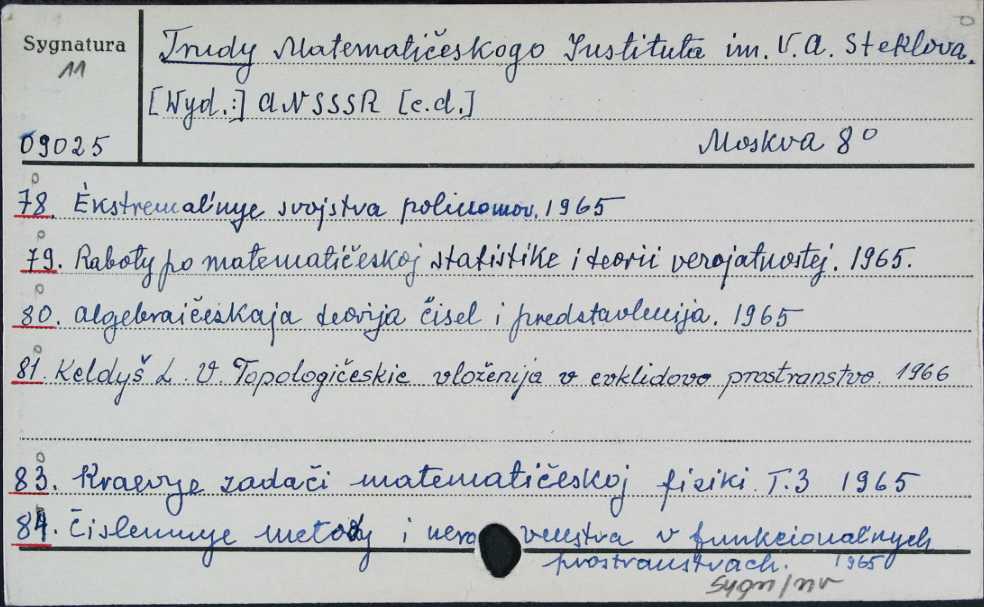 Sygnatura
11
09025
Trudy Matematičeskogo Instituta im. V. A. Steklova.
[Wyd.:] ANSSSR [c.d.]
Moskva 8°
78. Ėkstremal'nye svojstva polinomov. 1965
79. Raboty po matematičeskoj statistike i teorii verojatnostej. 1965.
80. Algebraičeskaja teorija čisel i predstavlenija. 1965
81. Keldyš L. V. Topologičeskie vloženija v evklidovo prostranstvo. 1966
83. Kraevye zadači matematičeskoj fiziki. T.3 1965
84. Čislennye metody i nera venstva v funkcional'nych
prostranstvach. 1965
Sygn/nv